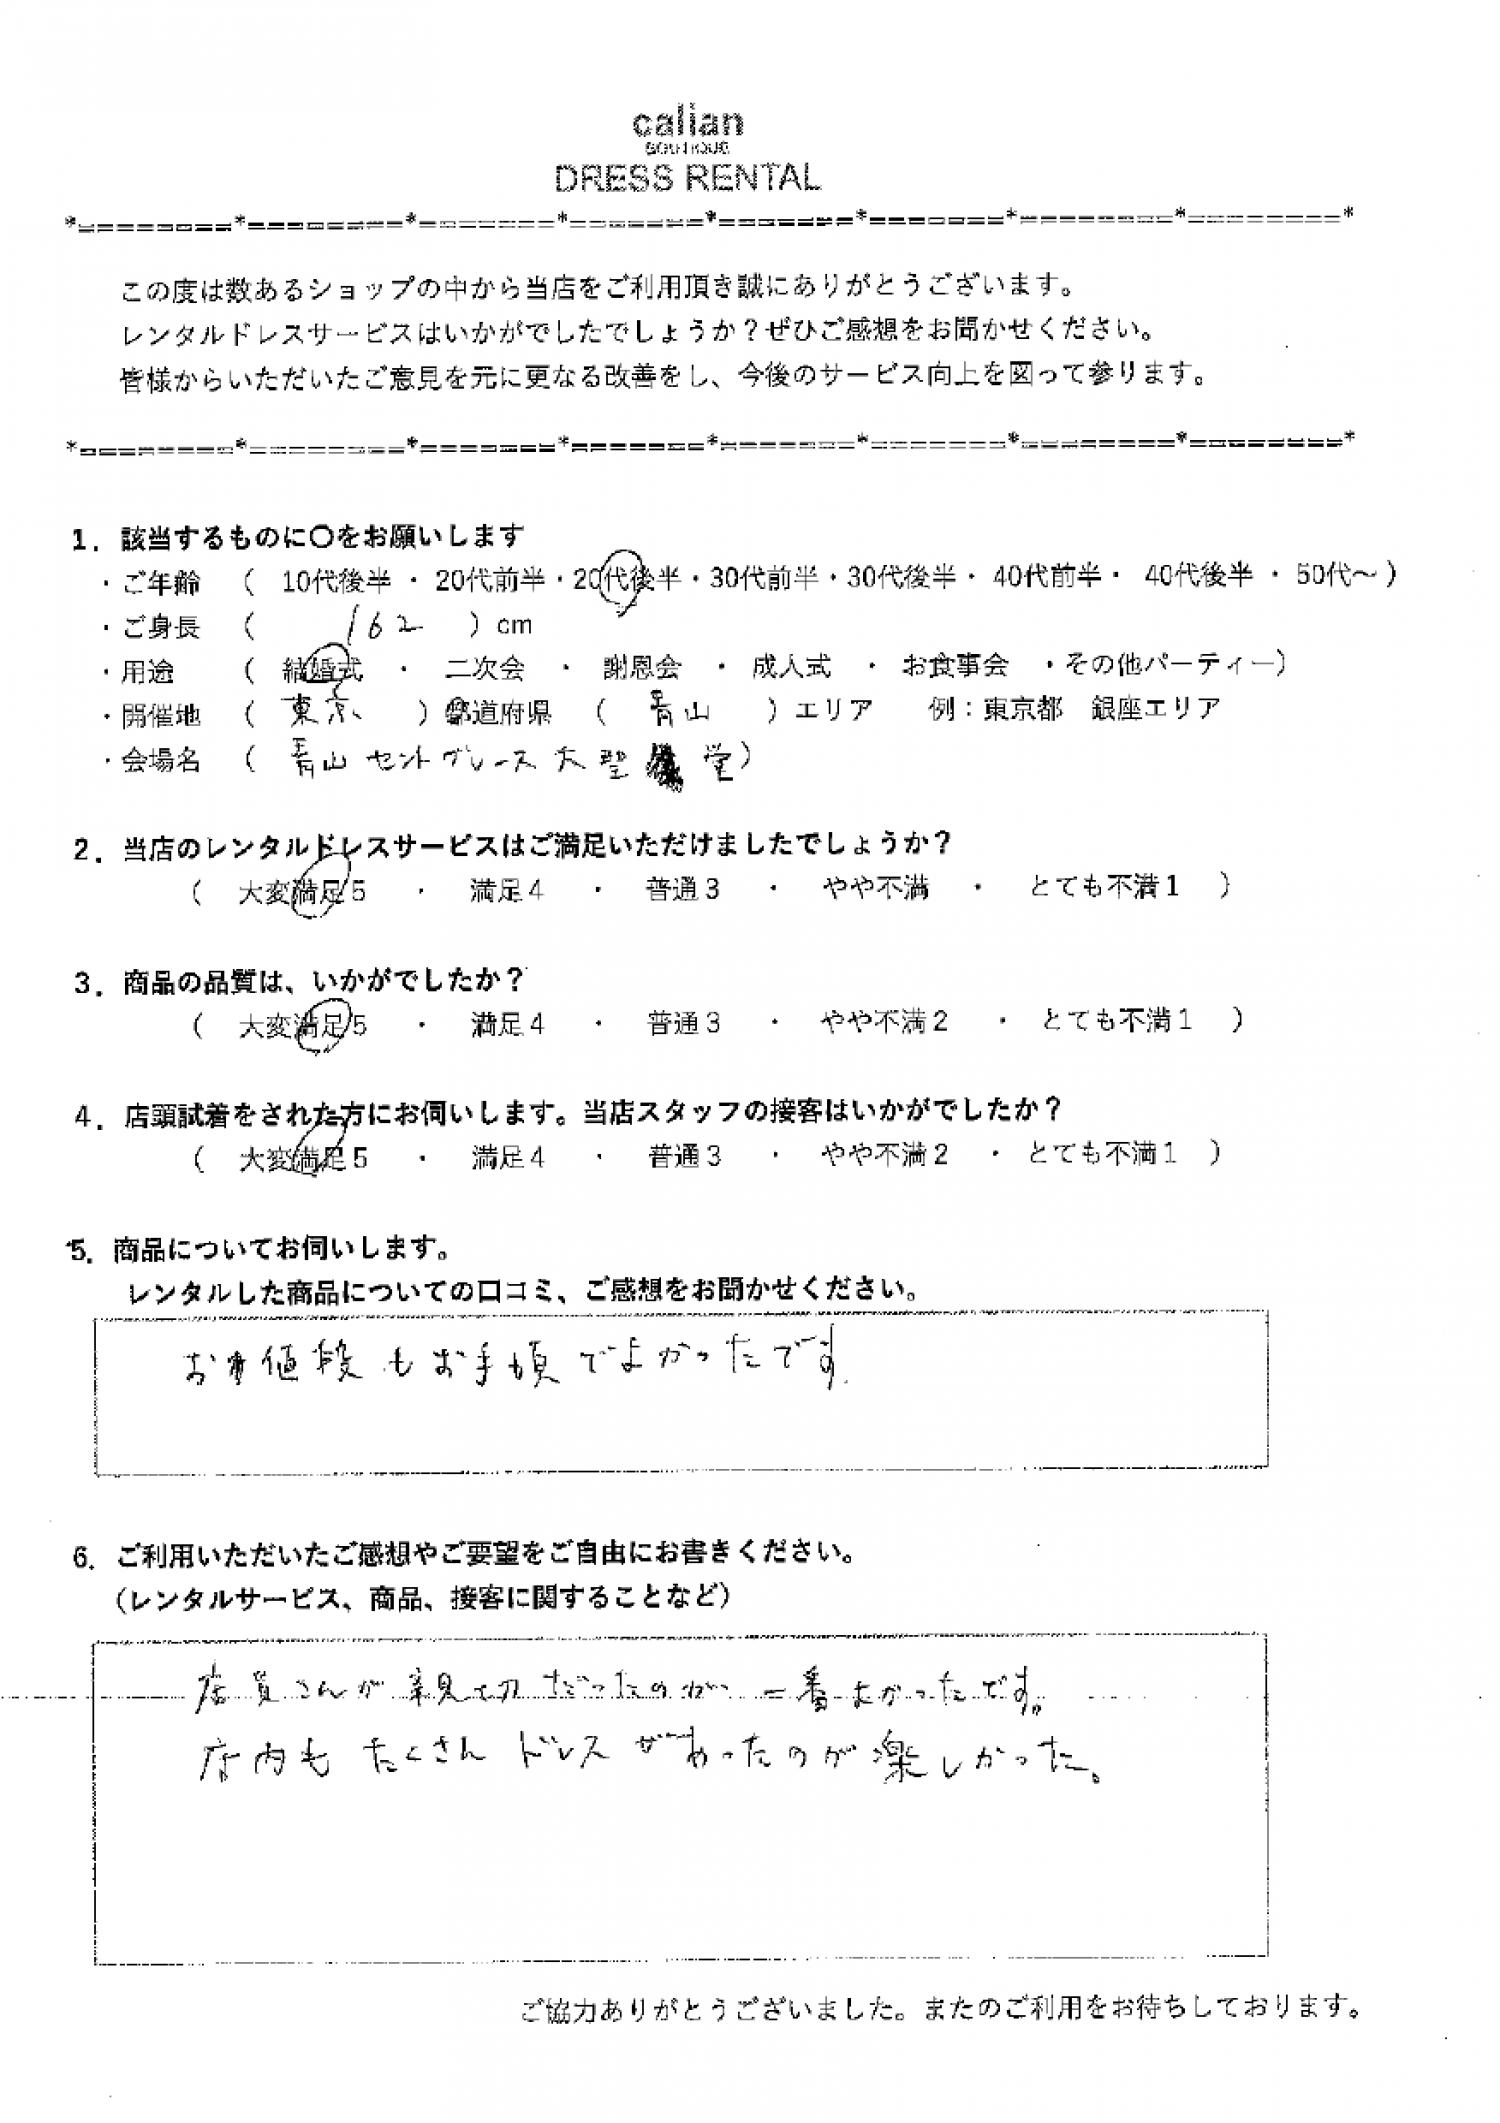 calian
BOUTIQUE
DRESS RENTAL
*========*========*=======*=======*=======*=======*========*========*
この度は数あるショップの中から当店をご利用頂き誠にありがとうございます。
レンタルドレスサービスはいかがでしたでしょうか？ぜひご感想をお聞かせください。
皆様からいただいたご意見を元に更なる改善をし、今後のサービス向上を図って参ります。
*========*========*=======*=======*=======*=======*========*========*
1．該当するものに〇をお願いします
・ご年齢 （ 10代後半 ・ 20代前半・20代後半・30代前半・30代後半・ 40代前半・ 40代後半 ・ 50代～）
・ご身長 （ 162 ）cm
・用途 （ 結婚式 ・ 二次会 ・ 謝恩会 ・ 成人式 ・ お食事会 ・その他パーティー）
・開催地 （ 東京 ）都道府県 （ 青山 ）エリア 例：東京都 銀座エリア
・会場名 （ 青山 セントグレース 大聖堂）
2．当店のレンタルドレスサービスはご満足いただけましたでしょうか？
（ 大変満足5 ・ 満足4 ・ 普通3 ・ やや不満 ・ とても不満1 ）
3．商品の品質は、いかがでしたか？
（ 大変満足5 ・ 満足4 ・ 普通3 ・ やや不満2 ・ とても不満1 ）
4．店頭試着をされた方にお伺いします。当店スタッフの接客はいかがでしたか？
（ 大変満足5 ・ 満足4 ・ 普通3 ・ やや不満2 ・ とても不満1 ）
5．商品についてお伺いします。
レンタルした商品についての口コミ、ご感想をお聞かせください。
お値段もお手頃でよかったです
6．ご利用いただいたご感想やご要望をご自由にお書きください。
（レンタルサービス、商品、接客に関することなど）
店員さんが親切だったのが一番よかったです。
店内もたくさんドレスがあったのが楽しかった。
ご協力ありがとうございました。またのご利用をお待ちしております。